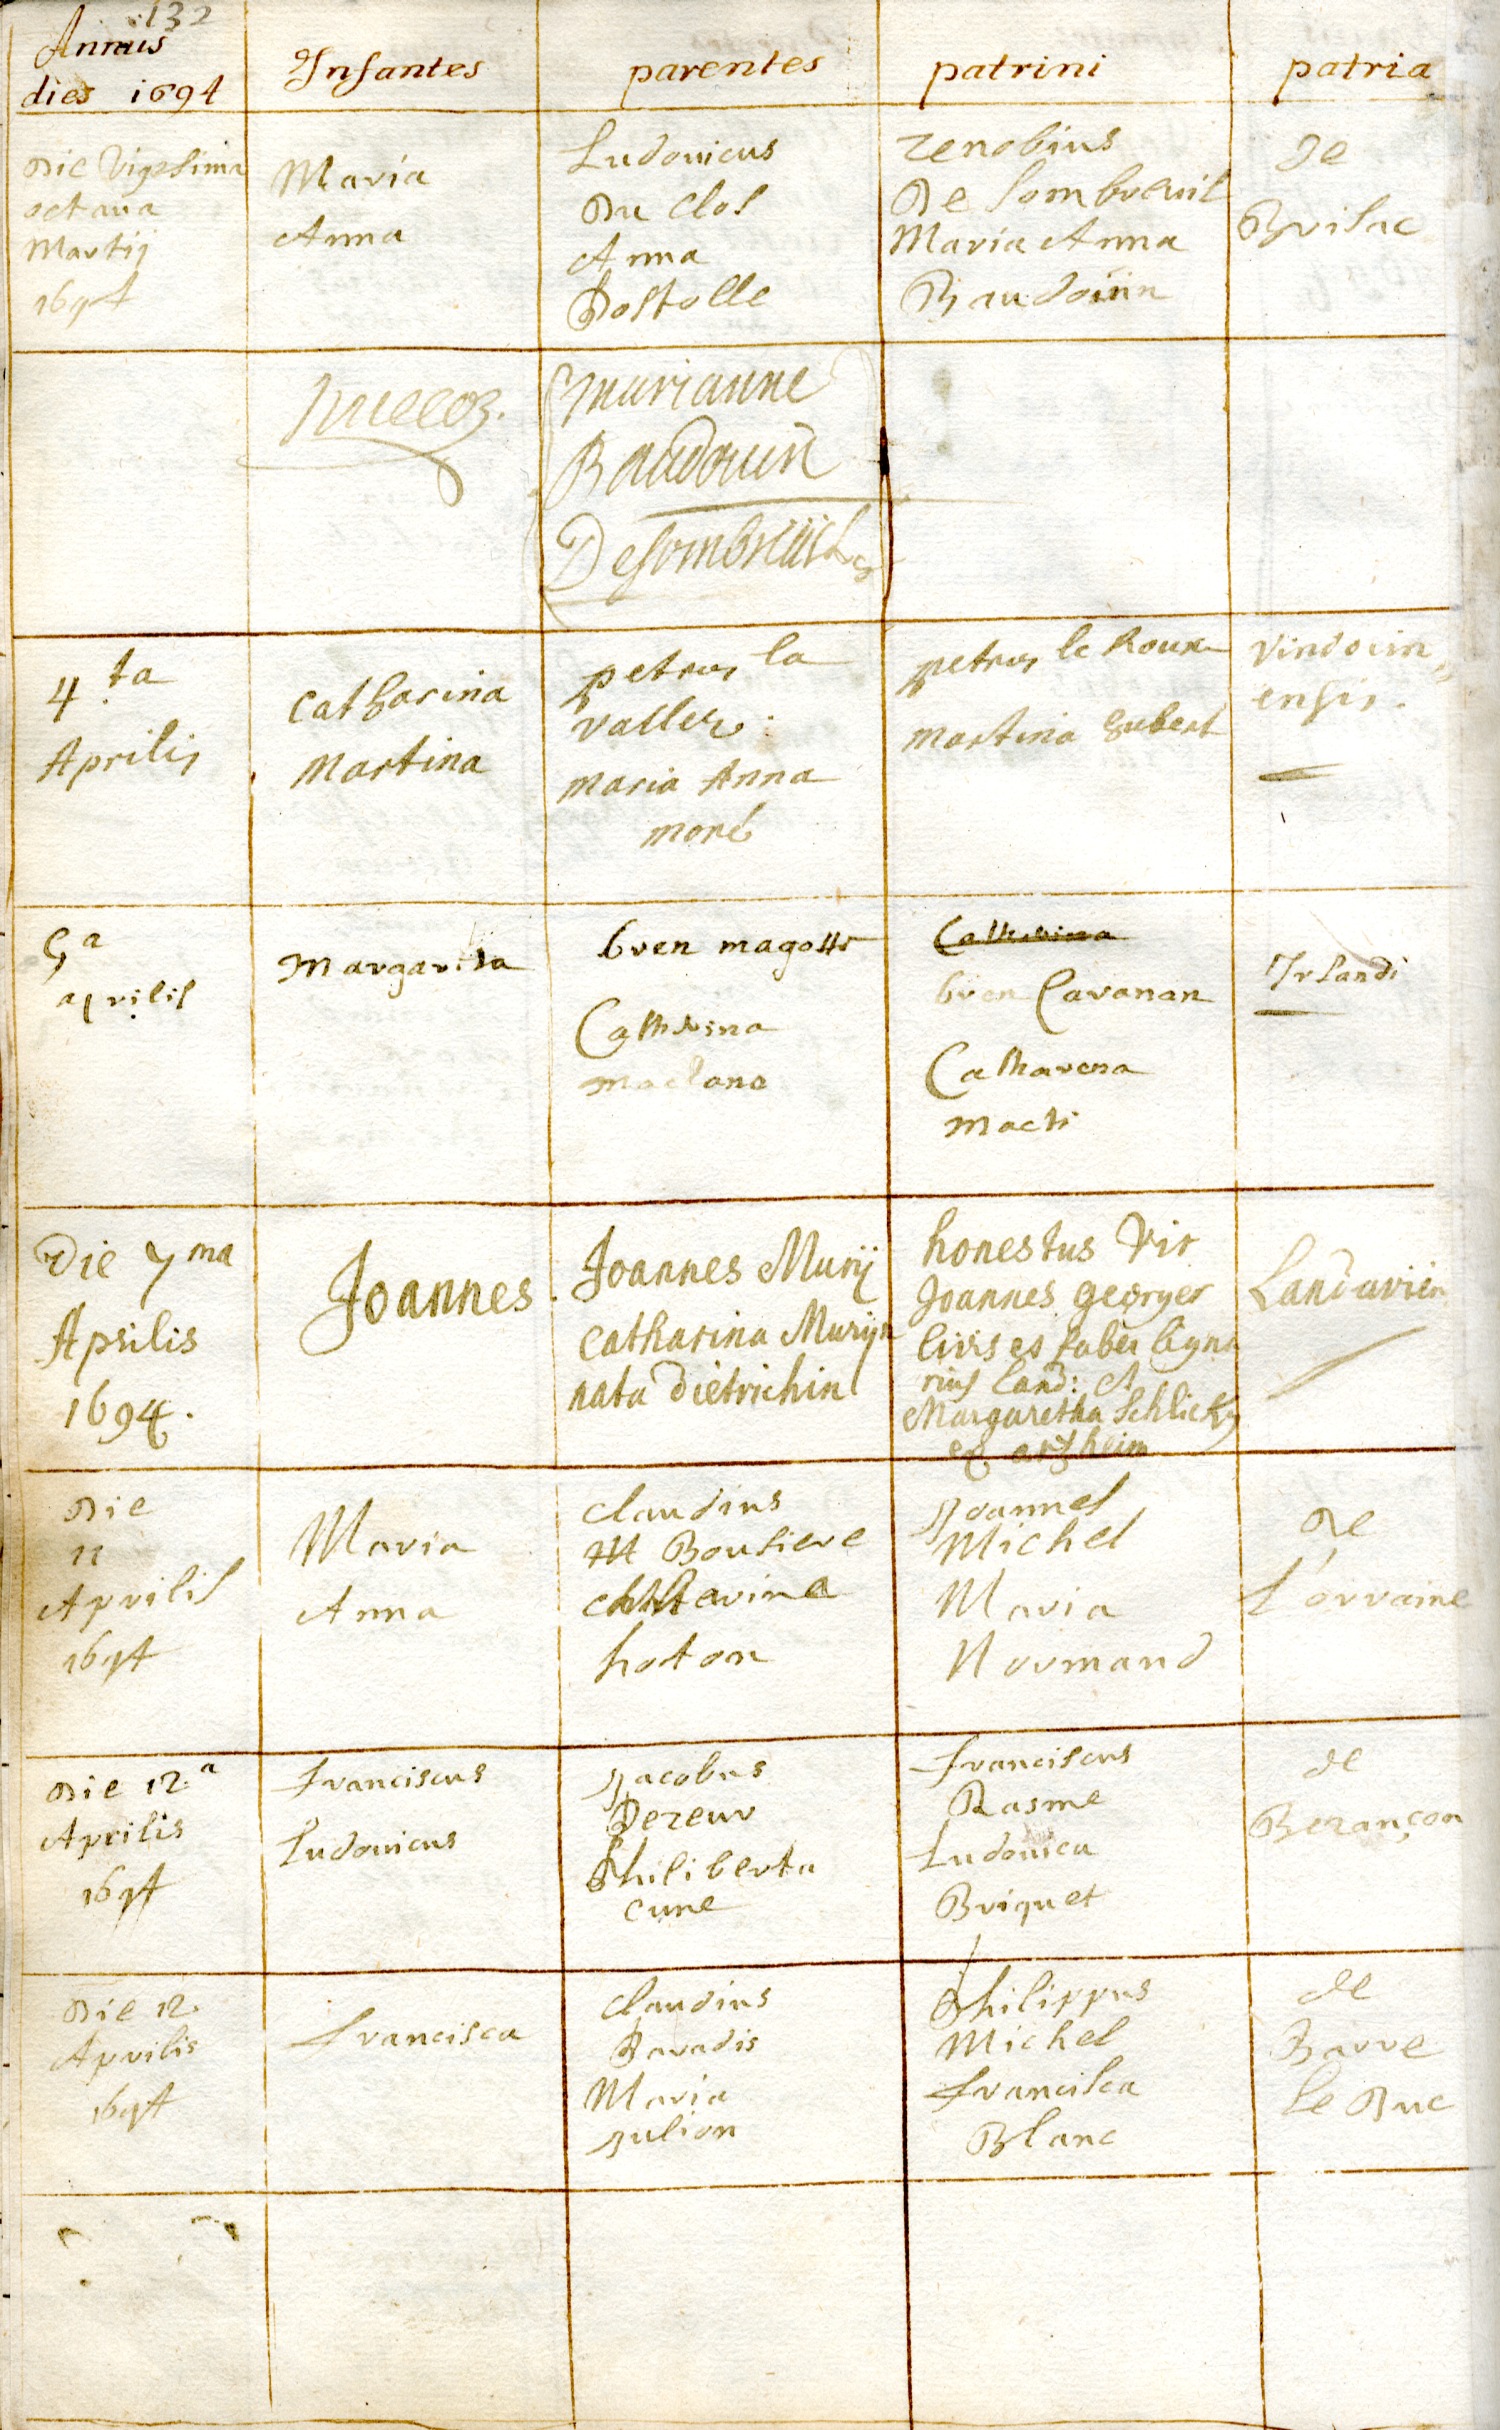 132
Annus
dies 1694
Infantes
parentes
patrini
patria
Die Vigesima
octava
Martij
1694
Maria
Anna
Ludovicus
Du Clos
Anna
Postolle
Zenobius
De Sombreuil
Maria Anna
Baudouin
De
Brisac
marianne
Baudouin
DeSombreüil
4.ta
Aprilis
Catharina
Martina
petrus la
vallez
maria Anna
moré
petrus le Roux
Martina hubert
vindocin
ensis.
5a
aprilis
Margarita
bren magotti
Catherina
maclana
Catherina
bren Cavanan
Catharena
macti
Irlandi
Die 7ma
Aprilis
1694.
Joannes
Joannes Murij
Catharina Murijn
nata Dietrichin
honestus Vir
Joannes georger
Civis et faber ligna
rius land: et
Margaretha Schlick
ex artzheim
Landavien
Die
11
Aprilis
1694
Maria
Anna
Claudius
M Bousiere
Chatterine
hoton
Joannes
Michel
Maria
Normand
De
L'orraine
Die 12.a
Aprilis
1694
Franciscus
Ludovicus
Jacobus
Pezeur
Philiberta
cune
Franciscus
Rasme
Ludovica
Briquet
de
Bezançon
Die 12.
Aprilis
1694
Francisca
Claudius
Paradis
Maria
Julion
Philippus
Michel
Francisca
Blanc
de
Barre
le Duc